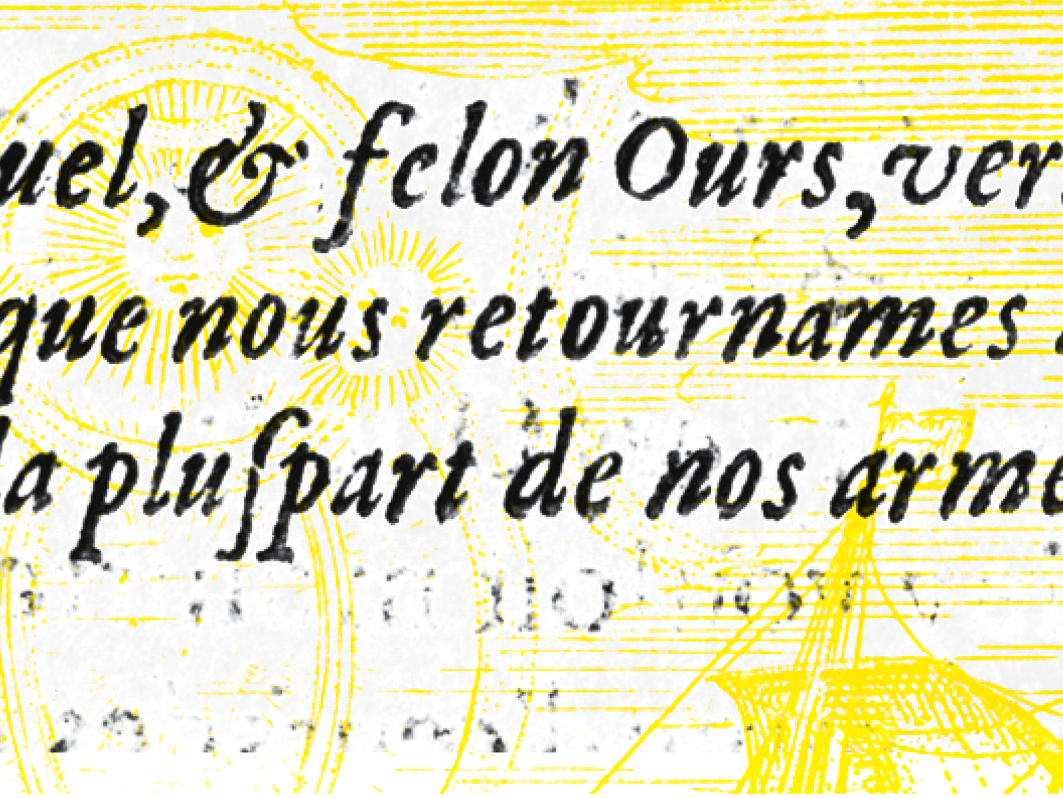 uel, & ſelon Ours, vers
que nous retournames
la pluſpart de nos arme